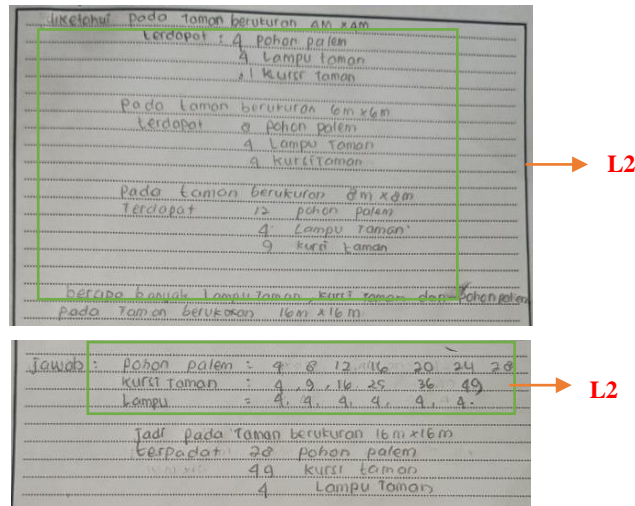 diketahui pada taman berukuran 4M x 4M
terdapat : 4 pohon palem
4 Lampu taman
1 kursi taman
pada taman berukuran 6m x 6m
terdapat 8 pohon palem
4 Lampu Taman
4 kursi Taman
L2
pada taman berukuran 8m x 8m
Terdapat 12 pohon palem
4 Lampu Taman
9 kursi taman
berapa banyak Lampu Taman, kursi taman dan pohon palem
pada Taman berukuran 16m x 16m
Jawab : pohon palem : 4 8 12 16 20 24 28
kursi Taman : 4, 9, 16 25 36 49
L2
Lampu = 4, 4, 4, 4, 4, 4.
Jadi pada Taman berukuran 16m x 16m
terpadat 28 pohon palem
49 kursi taman
4 Lampu Taman